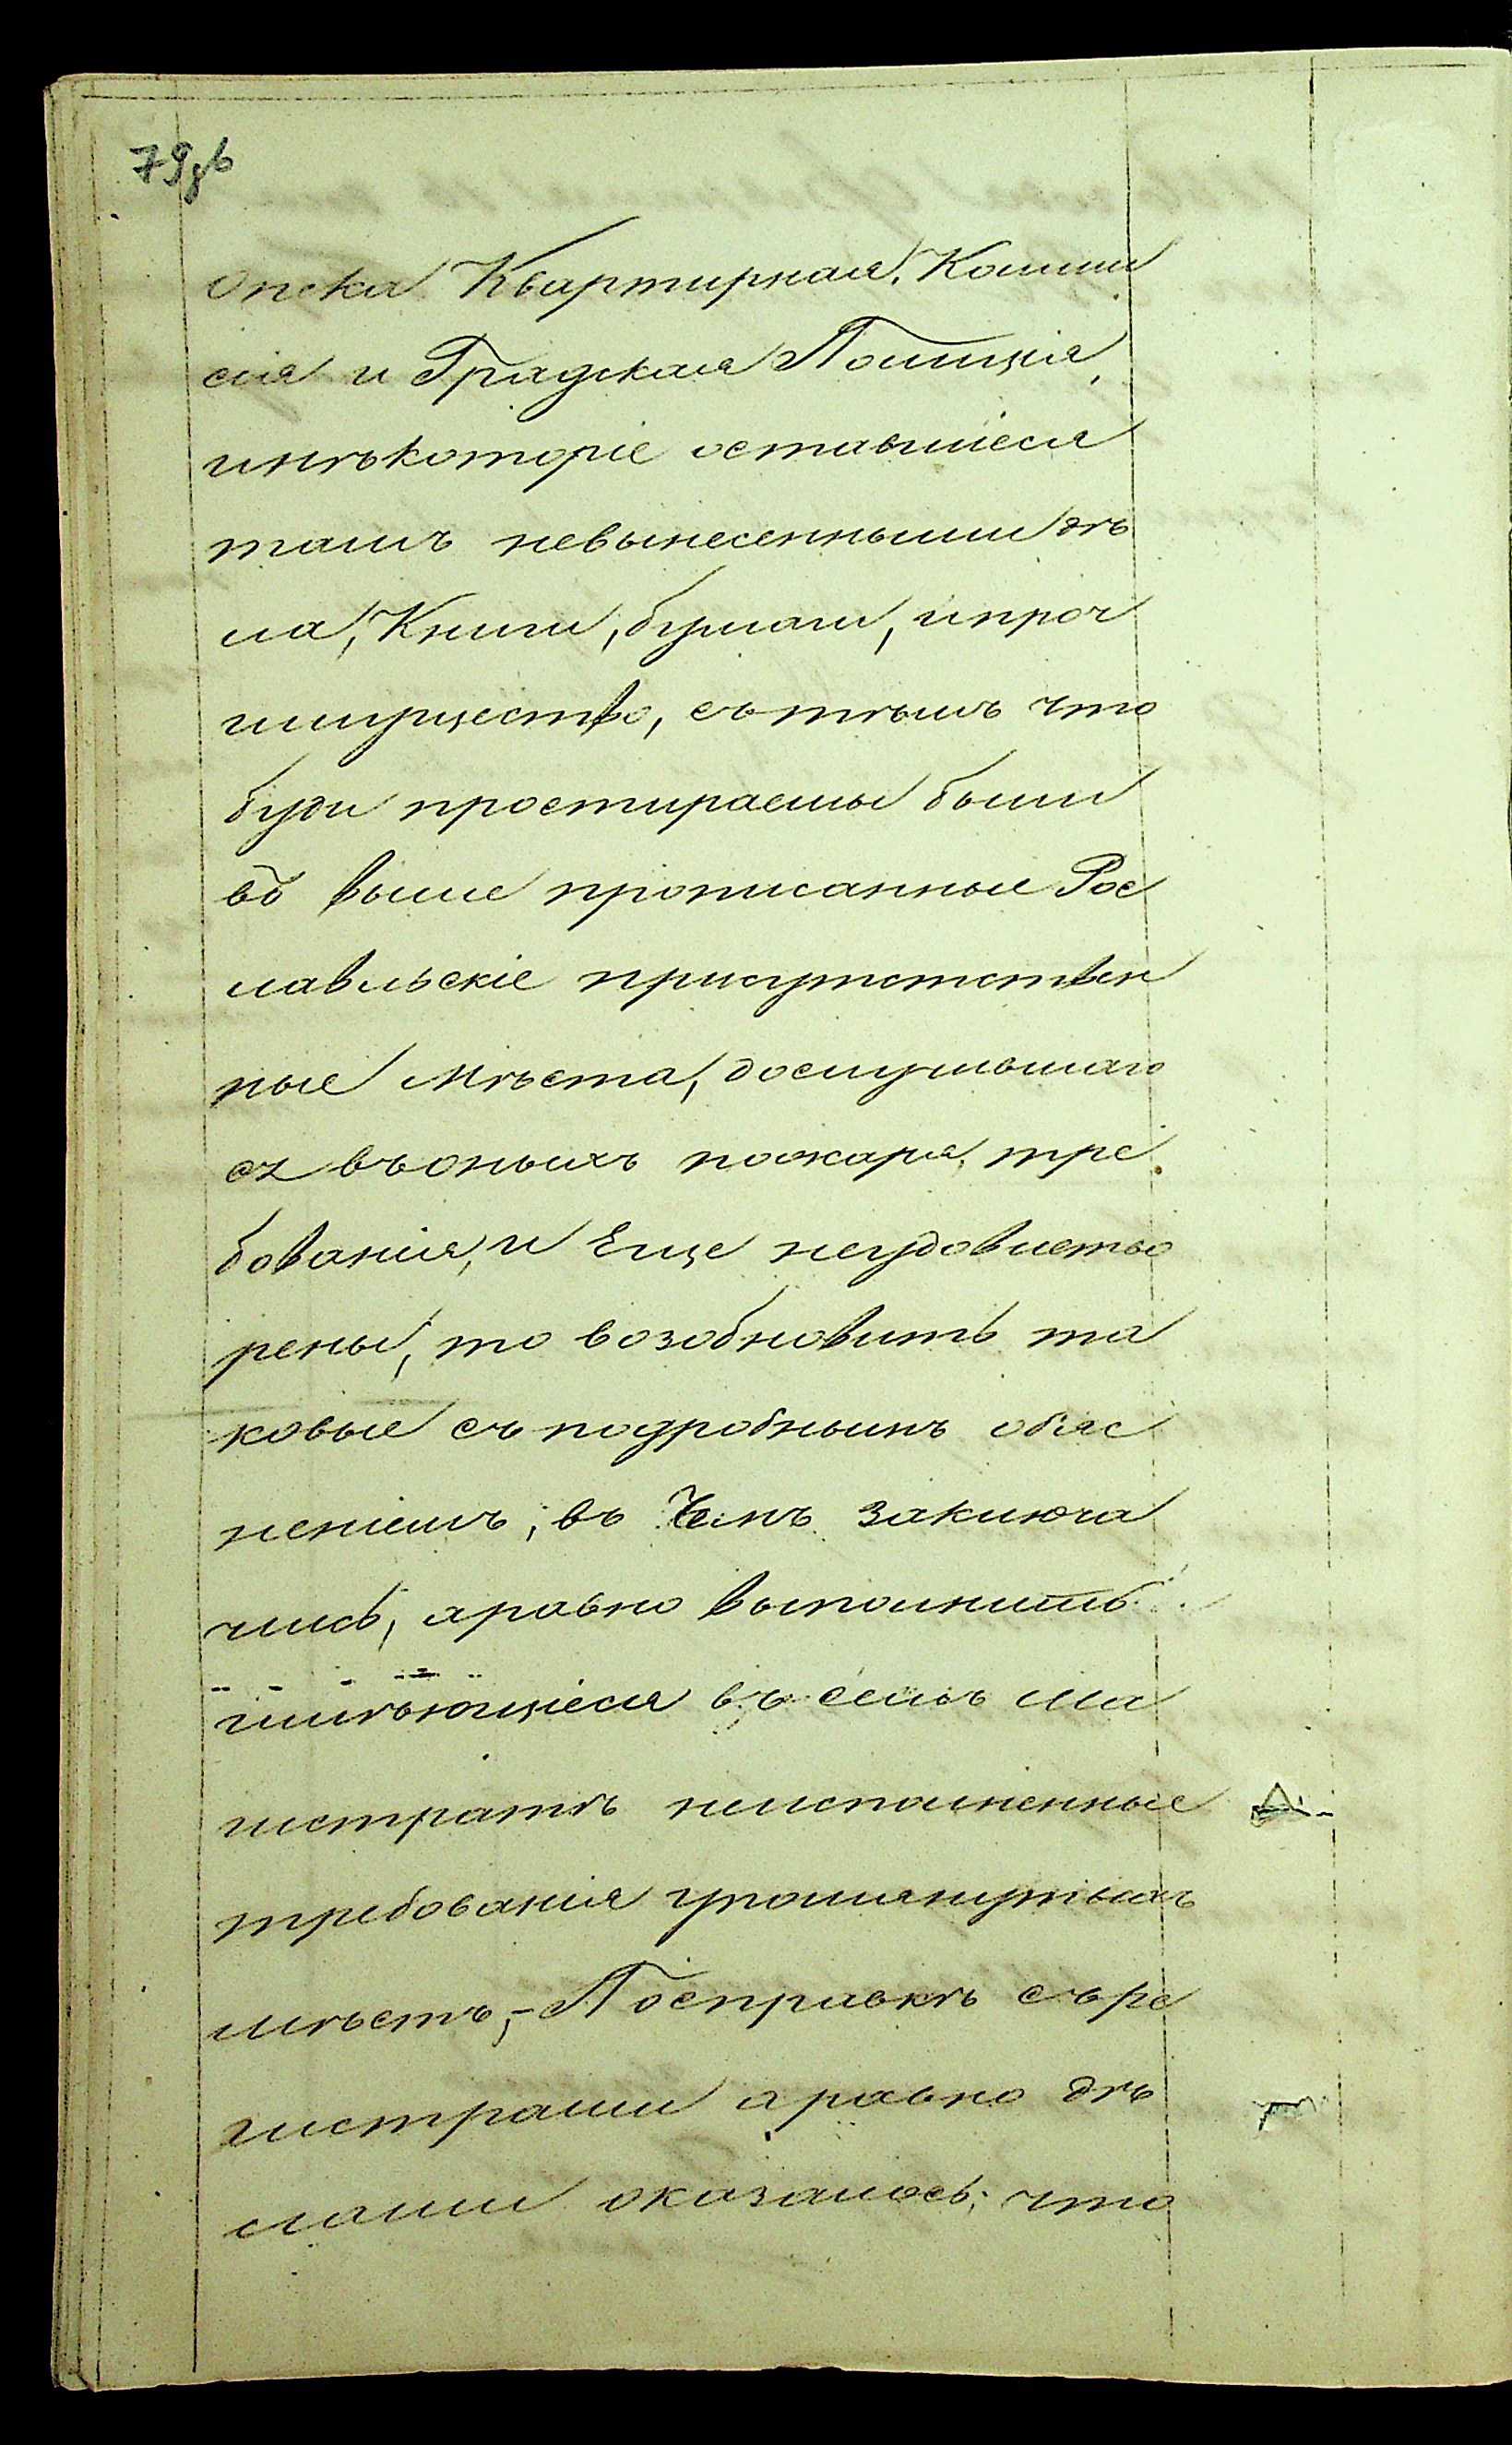 79об
опека Квартирная, Комми
сія и Градская Полиція,
инѣкоторіе оставшіеся
тамъ невынесенными дѣ
ла, Книги, бумаги, ипроч
имущество, сътѣмъ что
буди простираемы были
въ выше прописанные Рос
лавльскіе присутстствен
ные мѣста, дослучившаго
ся въоныхъ пожара, тре
бованія, и Еще неудовлетво
рены, то возобновить та
ковые съподробнымъ обяс
неніемъ, въ Чемъ заключа
лись, аравно выполнить
имѣющіеся въ семъ ма
гистратѣ неисполненные
требованія упомянутыхъ
мѣстъ,- Посправкѣ съре
гистрами аравно дѣ
лами оказалось; что